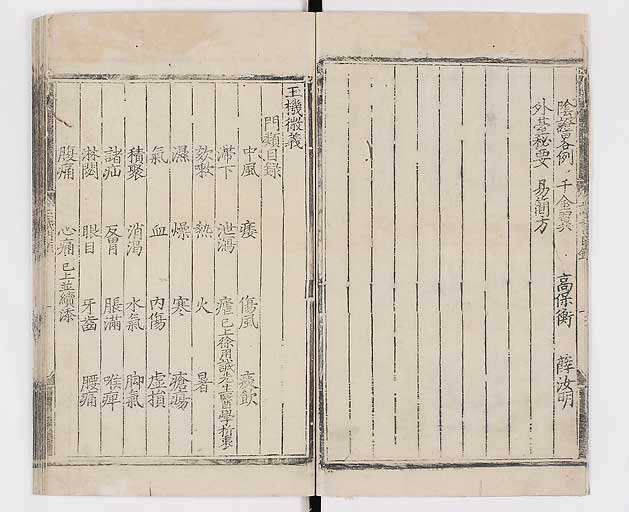 陰證畧例　千金翼　高保衡　薛汝明
外臺秘要　易簡方
玉機微義
門類目錄
中風　痿　傷風　痰飲
滯下　泄瀉　瘧　已上徐用誠先生醫學折衷
欬嗽　熱　火　暑
濕　燥　寒　瘡瘍
氣　血　內傷　虛損
積聚　消渴　水氣　脚氣
諸疝　反胃　脹滿　喉痺
淋閟　眼目　牙齒　腰痛
腹痛　心痛　已上並續添